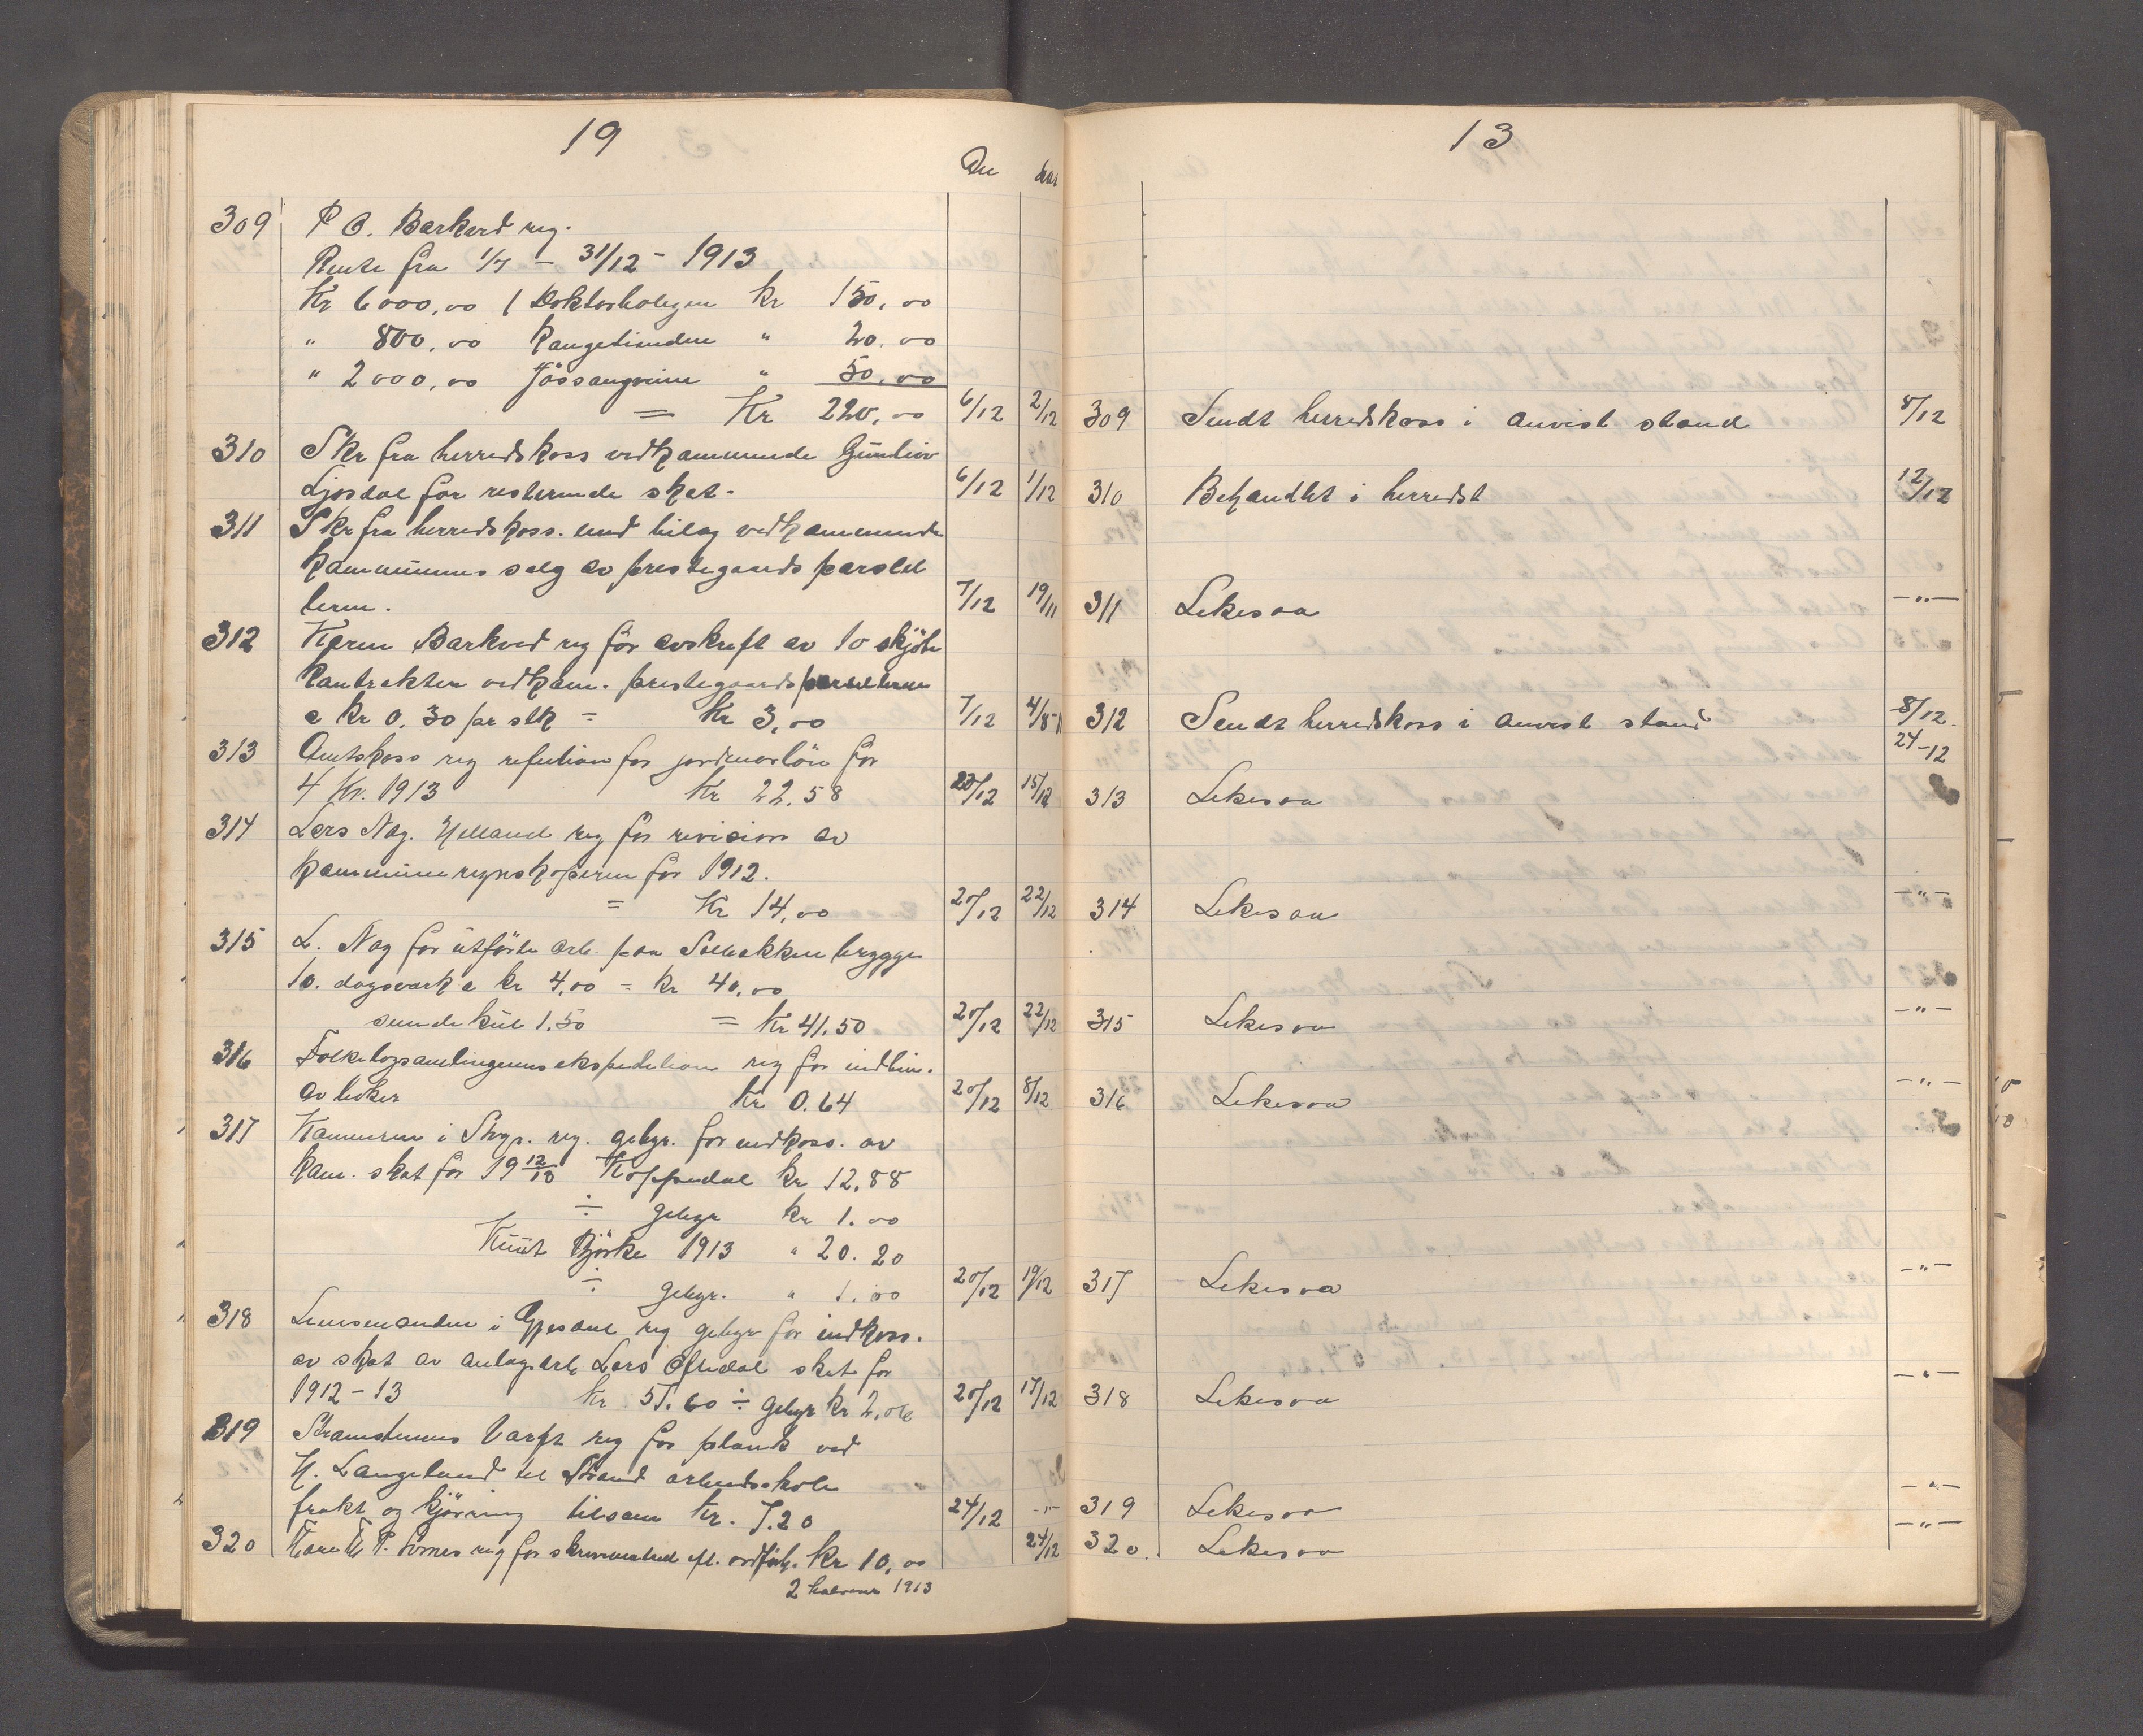 19
309 P O. Barkved reg.
Rente fra 1/7 - 31/12 - 1913
Kr 6000,00 1 Doktorboligen kr 150,00
" 800,00 "  20.00
" 2000,00 Jössangveien " 50,00
= Kr 220,00 6/12 2/12
310 Skr fra herredskass vedkommende Gunleiv
Ljosdal for resterende skat. 6/12 1/12
311 Skr fra herredskass. med bilag vedkommende
kommunens salg av prestegaards parsell
erne. 7/12 19/11
312 Karen Barkved reg for avskrift av 10 skjöte
kontrakter vedkom. prestegaardsparsellerne
a kr 0,30 pr stk = Kr 3,00 7/12 4/8
313 Amtskass reg refution for jordmorlön for
4 Kv. 1913 Kr 22.58 20/12 15/12
314 Lars Nag. Helland reg for revision av
kommuneregnskaperne for 1912.
= Kr 14,00 20/12 22/12
315 L. Nag for utförte arb. paa Solbakken brygge
10. dagsverk a kr 4,00 = kr 40,00
1.50 = Kr 41.50 20/12 22/12
316 Folketogsamlingenes ekspedition reg for indbin.
av böker Kr 0.64 20/12 8/12
317 Kæmneren i Stvgr. reg. gebyr. for indkass. av
kom. skat for 19 12/13 Koppedal kr 12.88
÷ gebyr kr 1.00
Knut Björke 1913 " 20.20
÷ gebyr. " 1.00 20/12 19/12
318 Lensmanden i Gjesdal reg gebyr for indkass.
av skat av anlægsarb Lars Oftedal skat for
1912-13 Kr 57.60 ÷ gebyr kr 2,06 20/12 17/12
319 Stramstenes Varft reg for plank ved
H. Langeland til Strand arbeidsskole
frakt og kjörring tilsam Kr. 7.20 24/12 -"-
320 P. reg for skrivearbeid eft. ordförh. Kr 10,00 24/12
2 halvaar 1913
13
309 Sendt herredskass i anvist stand 8/12
310 Behandlet i herredst 12/12
311 Likesaa -"-
312 Sendt herredskass i anvist stand 8/12
24-12
313 Likesaa
314 Likesaa -"-
315 Likesaa -"-
316 Likesaa -"-
317 Likesaa -"-
318 Likesaa -"-
319 Likesaa -"-
320. Likesaa -"-